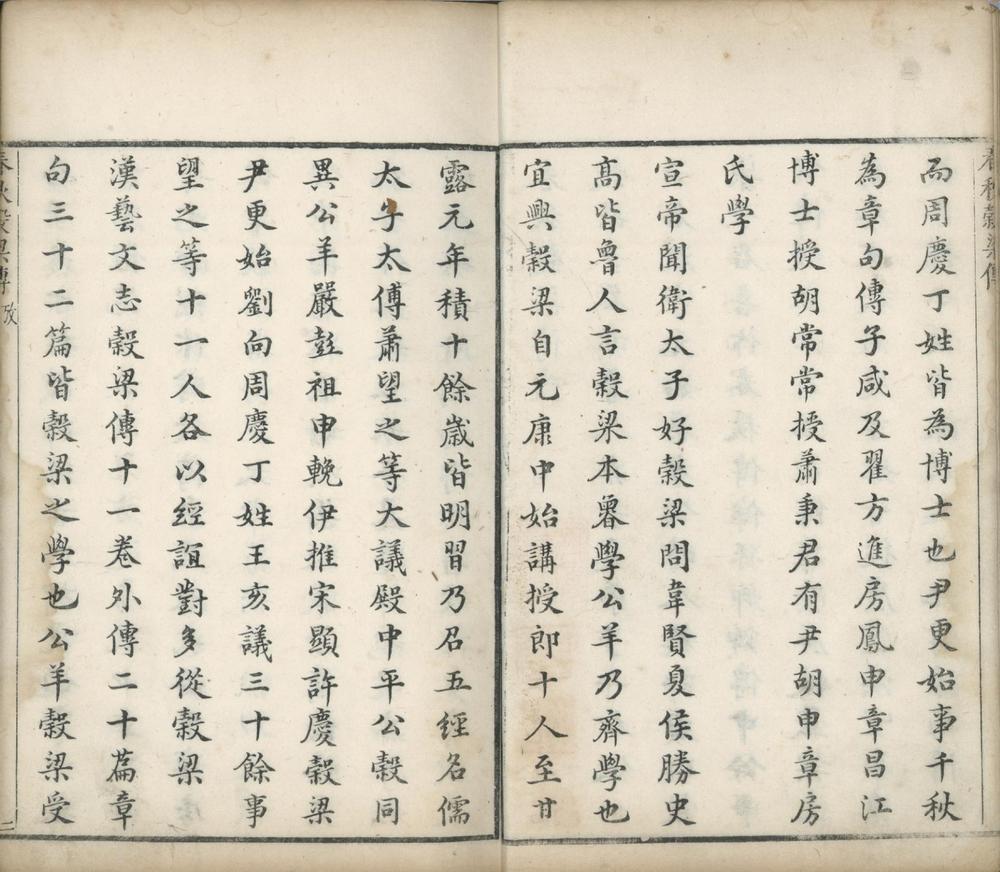 春秋穀梁傳
而周慶丁姓皆為博士也尹更始事千秋
為章句傳子咸及翟方進房鳳申章昌江
博士授胡常常授蕭秉君有尹胡申章房
氏學
宣帝聞衛太子好穀梁問韋賢夏侯勝史
髙皆魯人言穀梁本魯學公羊乃齊學也
宜興穀梁自元康中始講授郎十人至甘
露元年積十餘歲皆明習乃召五經名儒
太子太傅蕭望之等大議殿中平公穀同
異公羊嚴彭祖申輓伊推宋顯許慶穀梁
尹更始劉向周慶丁姓王亥議三十餘事
望之等十一人各以經誼對多從穀梁
漢藝文志穀梁傳十一卷外傳二十篇章
句三十二篇皆穀梁之學也公羊穀梁受
春秋穀梁傳 攷 二